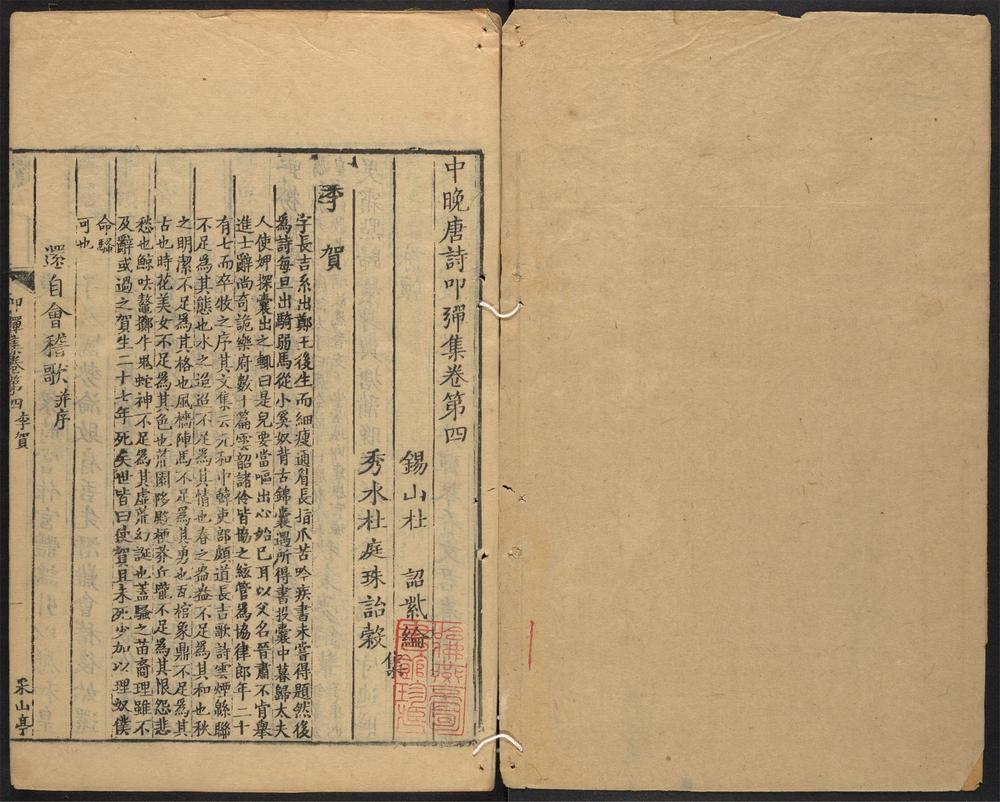 中晚唐詩叩彈集卷第四
錫山杜　詔紫綸
秀水杜庭珠詒穀
集
李賀
字長吉系出鄭王後生而細瘦通眉長指爪苦吟疾書未嘗得題然後
為詩每旦出騎弱馬從小奚奴背古錦囊遇所得書投囊中暮歸太夫
人使婢探囊出之輒曰是兒要當嘔出心始已耳以父名晉肅不肯舉
進士辭尚奇詭樂府數十篇雲韶諸伶皆協之絃管為協律郎年二十
有七而卒牧之序其文集云元和中韓吏部頗道長吉歌詩雲煙緜聯
不足為其態也水之迢迢不足為其情也春之盎盎不足為其和也秋
之明潔不足為其格也風檣陣馬不足為其勇也瓦棺象鼎不足為其
古也時花美女不足為其色也荒園陊殿梗莽丘隴不足為其恨怨悲
愁也鯨呿鰲擲牛鬼蛇神不足為其虛荒幻誕也蓋騷之苗裔理雖不
及辭或過之賀生二十七年死矣世皆曰使賀且未死少加以理奴僕
命騷
可也
還自會稽歌并序
叩彈集卷第四　李賀
采山亭